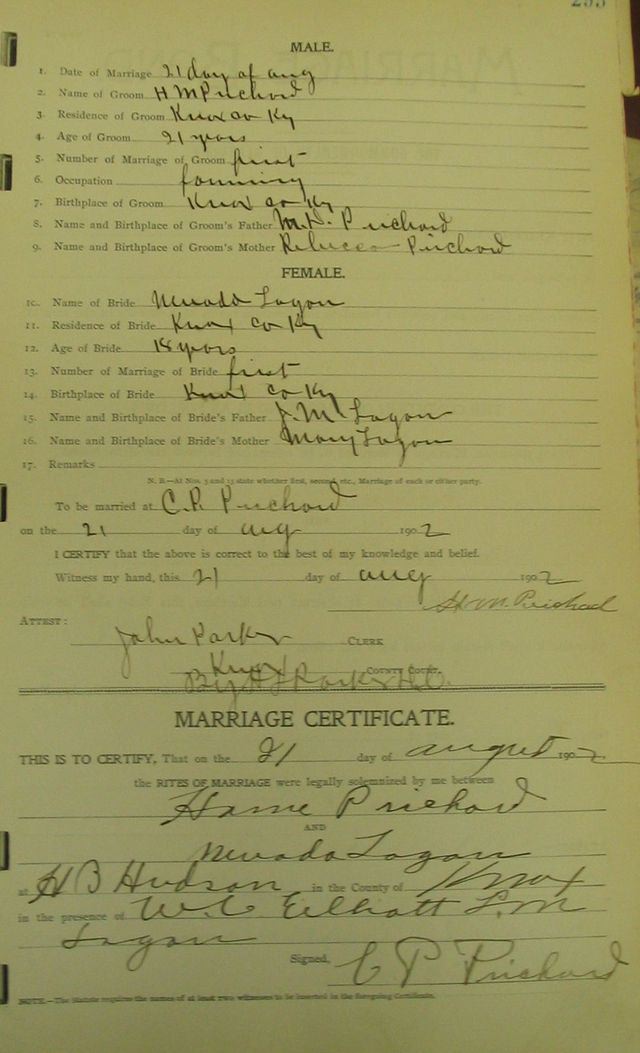 MALE.
1. Date of Marriage 21 day of aug
2. Name of Groom H M Prichard
3. Residence of Groom Knox co Ky
4. Age of Groom 21 years
5. Number of Marriage of Groom first
6. Occupation farming
7. Birthplace of Groom Knox co Ky
8. Name and Birthplace of Groom's Father Prichard
9. Name and Birthplace of Groom's Mother Rebecca Prichard
FEMALE.
10. Name of Bride Nevada Logan
11. Residence of Bride Knox co Ky
12. Age of Bride 18 years
13. Number of Marriage of Bride first
14. Birthplace of Bride Knox co Ky
15. Name and Birthplace of Bride's Father J. M Logan
16. Name and Birthplace of Bride's Mother Mary Logan
17. Remarks
N. B.—At Nos. 5 and 13 state whether first, second, etc., Marriage of each or either party.
To be married at C. P. Prichard
on the 21 day of aug 1902
I CERTIFY that the above is correct to the best of my knowledge and belief.
Witness my hand, this 21 day of aug 1902
H. M. Prichard
ATTEST:
John Parker CLERK
Knox COUNTY COURT.
By Parker D.C.
MARRIAGE CERTIFICATE.
THIS IS TO CERTIFY, That on the 21 day of august 1902
the RITES OF MARRIAGE were legally solemnized by me between
Prichard
AND
Nevada Logan
at H B Hudson in the County of Knox
in the presence of W. C Elliott L. M
Logan
Signed, C P Prichard
NOTE.—The Statute requires the names of at least two witnesses to be inserted in the foregoing Certificate.